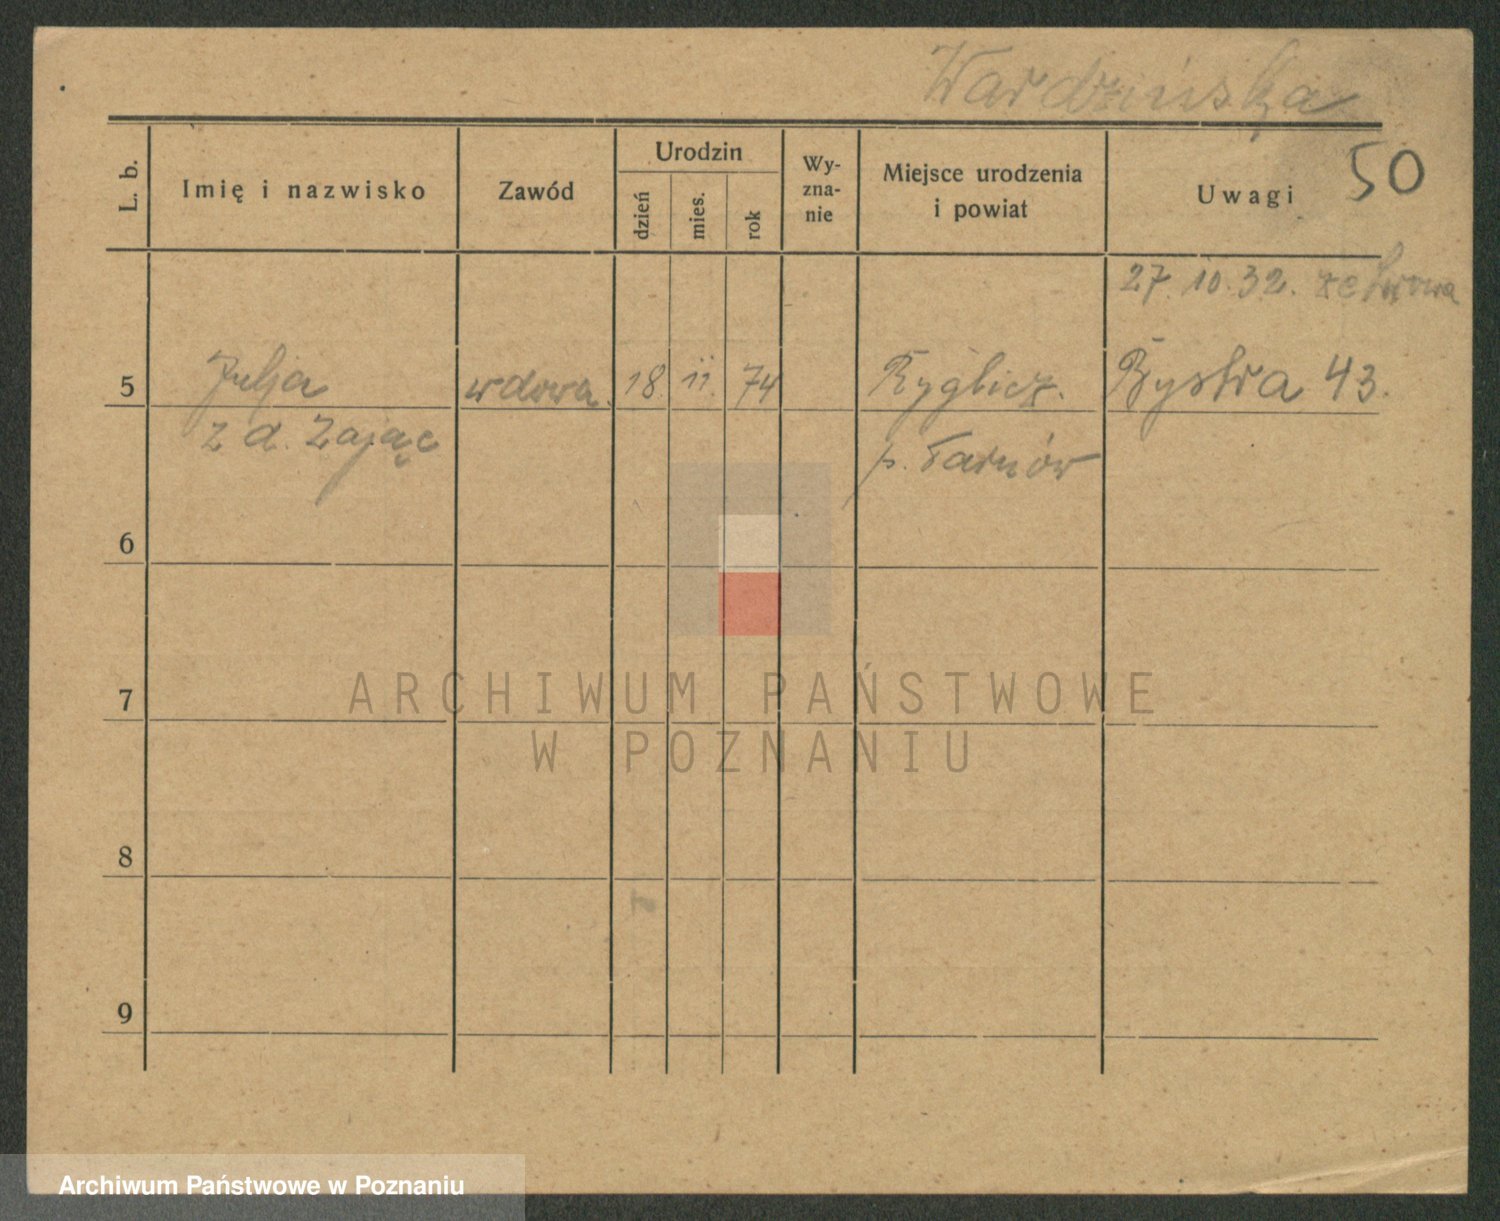 Wardzińska
50
L. b.
Imię i nazwisko
Zawód
Urodzin
dzień
mies.
rok
Wy-
zna-
nie
Miejsce urodzenia
i powiat
Uwagi
27. 10. 32. ze Lwowa
5 Julja wdowa. 18 11. 74 Ryglicz. Bystra 43.
z d. Zając p. Tarnów
6
7
8
9
ARCHIWUM PAŃSTWOWE
W POZNANIU
Archiwum Państwowe w Poznaniu